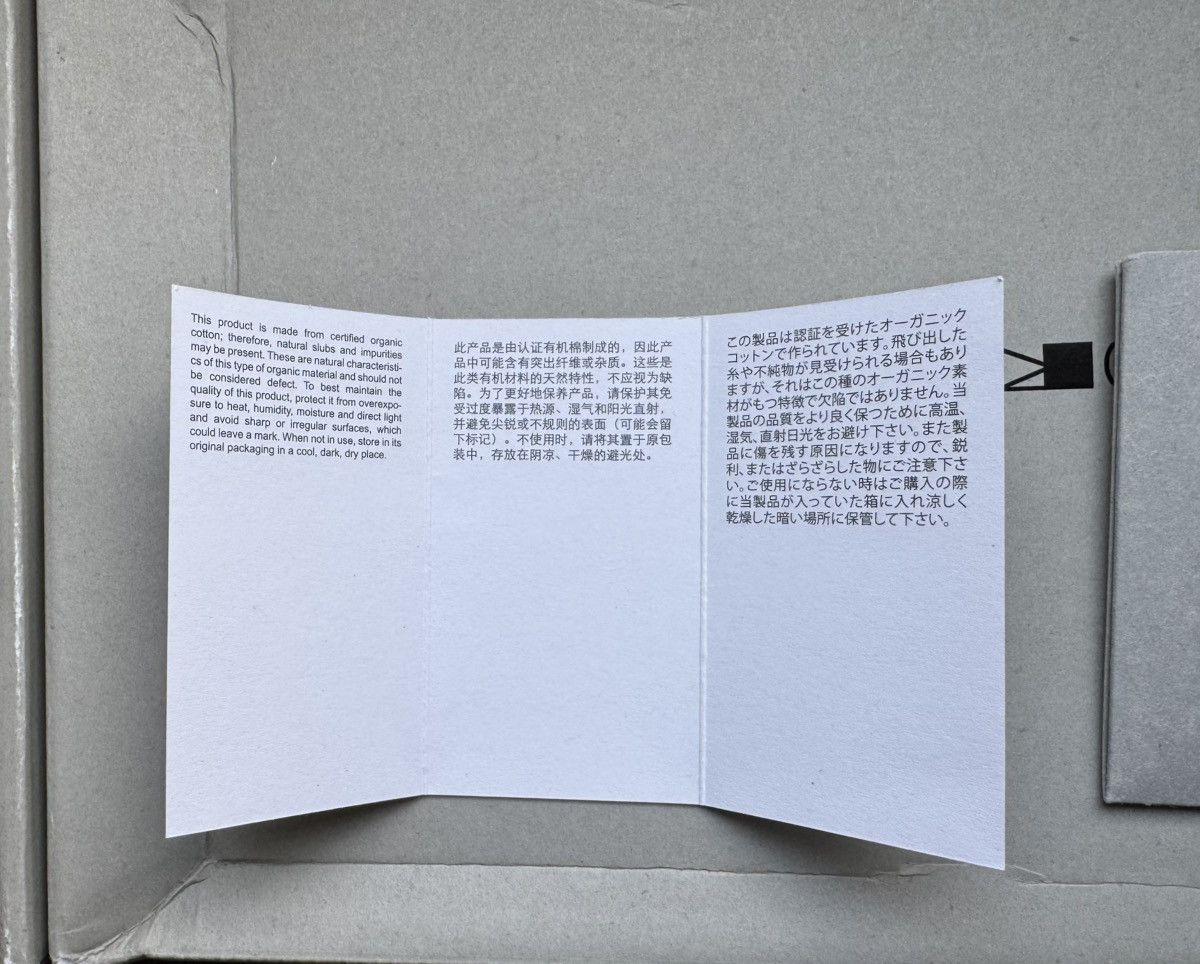 This product is made from certified organic
cotton; therefore, natural slubs and impurities
may be present. These are natural characteristi-
cs of this type of organic material and should not
be considered defect. To best maintain the
quality of this product, protect it from overexpo-
sure to heat, humidity, moisture and direct light
and avoid sharp or irregular surfaces, which
could leave a mark. When not in use, store in its
original packaging in a cool, dark, dry place.
此产品是由认证有机棉制成的，因此产
品中可能含有突出纤维或杂质。这些是
此类有机材料的天然特性，不应视为缺
陷。为了更好地保养产品，请保护其免
受过度暴露于热源、湿气和阳光直射，
并避免尖锐或不规则的表面（可能会留
下标记）。不使用时，请将其置于原包
装中，存放在阴凉、干燥的避光处。
この製品は認証を受けたオーガニック
コットンで作られています。飛び出した
糸や不純物が見受けられる場合もあり
ますが、それはこの種のオーガニック素
材がもつ特徴で欠陥ではありません。当
製品の品質をより良く保つために高温、
湿気、直射日光をお避け下さい。また製
品に傷を残す原因になりますので、鋭
利、またはざらざらした物にご注意下さ
い。ご使用にならない時はご購入の際
に当製品が入っていた箱に入れ涼しく
乾燥した暗い場所に保管して下さい。